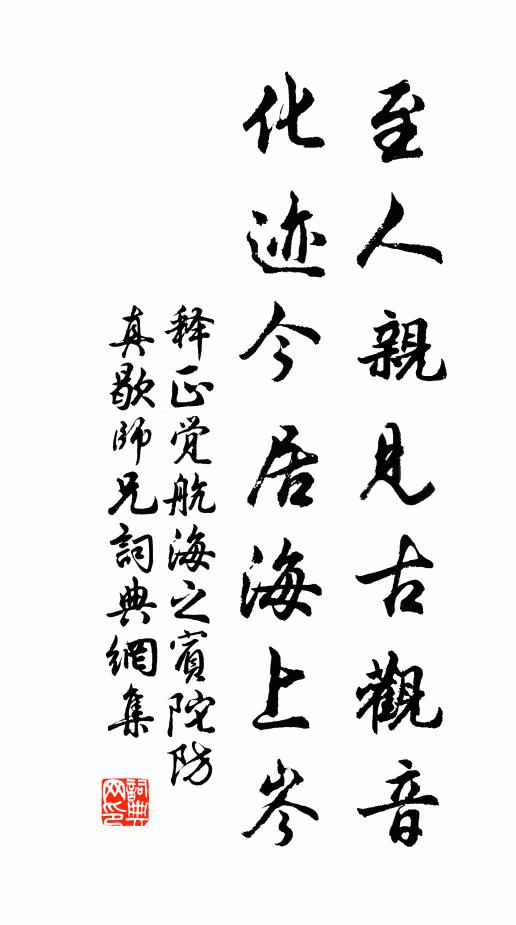 至人親見古觀音
化迹今居海上岑
释正觉航海之賓陀防
真歇師兄詞典網集
詞典網印